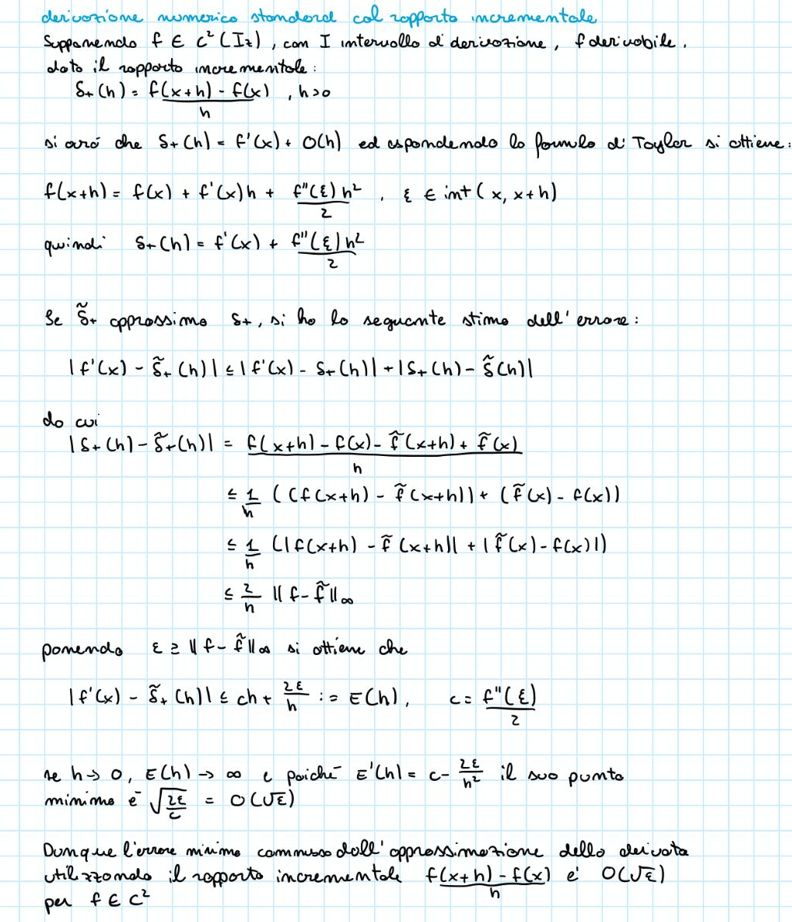 derivazione numerica standard col rapporto incrementale
Supponendo f ∈ C²(I_r), con I intervallo di derivazione, f derivabile.
dato il rapporto incrementale:
δ₊(h) = (f(x+h) - f(x))/h , h>0
si avrà che δ₊(h) = f'(x) + O(h) ed espandendo la formula di Taylor si ottiene:
f(x+h) = f(x) + f'(x)h + f''(ξ)h²/2 , ξ ∈ int(x, x+h)
quindi δ₊(h) = f'(x) + f''(ξ)h²/2
Se δ̃₊ approssima δ₊, si ha la seguente stima dell'errore:
|f'(x) - δ̃₊(h)| ≤ |f'(x) - δ₊(h)| + |δ₊(h) - δ̃(h)|
da cui
|δ₊(h) - δ̃₊(h)| = (f(x+h) - f(x) - f̃(x+h) + f̃(x))/h
≤ 1/h ((f(x+h) - f̃(x+h)) + (f̃(x) - f(x))
≤ 1/h (|f(x+h) - f̃(x+h)| + |f̃(x) - f(x)|)
≤ 2/h ‖f - f̃‖∞
ponendo ε ≥ ‖f - f̃‖∞ si ottiene che
|f'(x) - δ̃₊(h)| ≤ ch + 2ε/h := E(h), c = f''(ξ)/2
se h→0, E(h) → ∞ e poiché E'(h) = c - 2ε/h² il suo punto
minimo è √(2ε/c) = O(√ε)
Dunque l'errore minimo commesso dall'approssimazione della derivata
utilizzando il rapporto incrementale (f(x+h) - f(x))/h è O(√ε)
per f ∈ C²